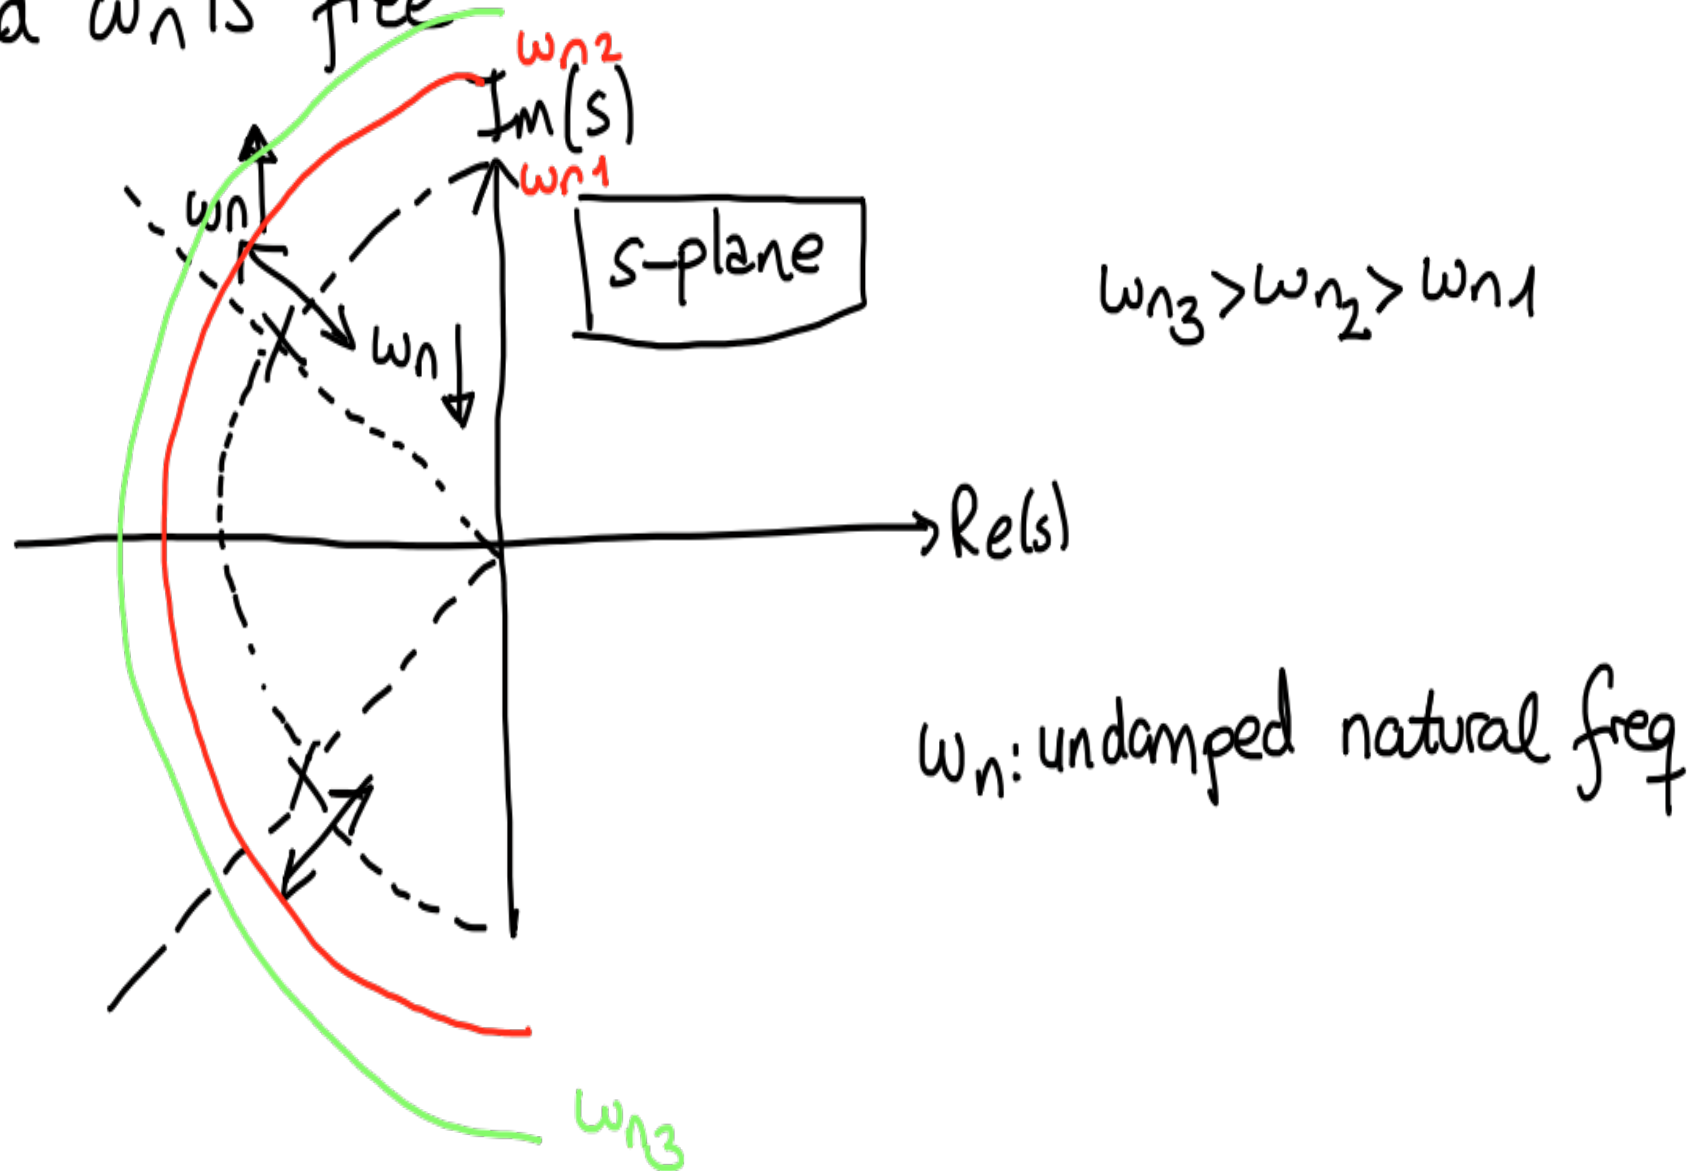 ωn is free
ωn2
Im(s)
ωn1
ωn
s-plane
ωn3>ωn2>ωn1
ωn
Re(s)
ωn: undamped natural freq
ωn3